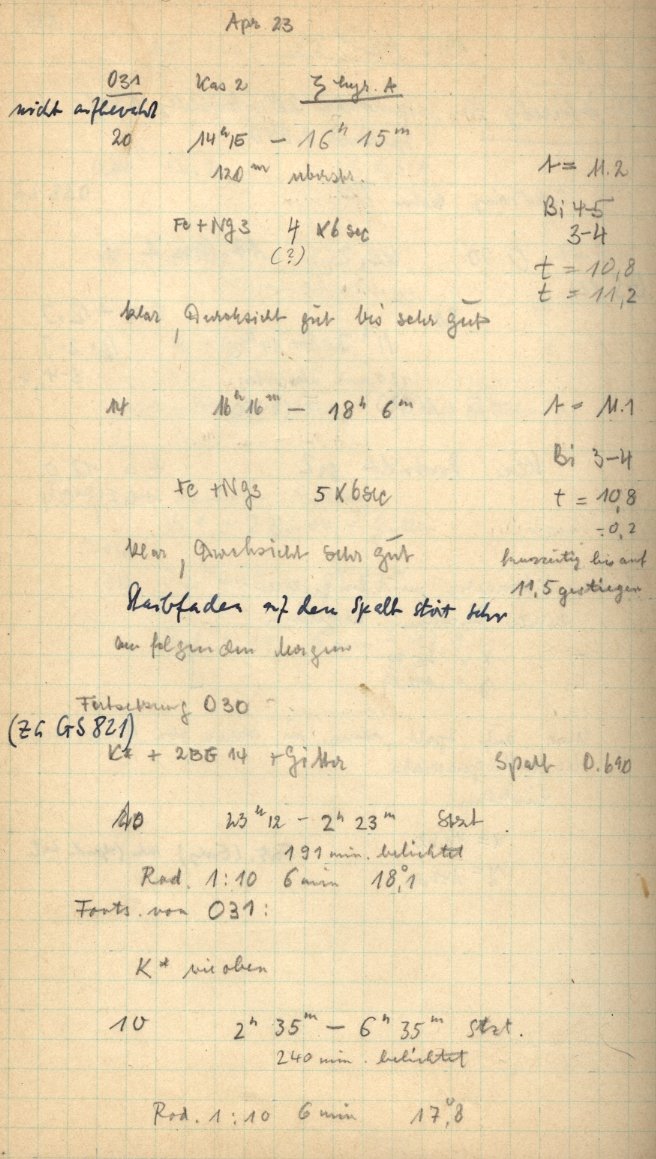 Apr. 23
031 Kas 2 ζ hyr. A
nicht aufbewahrt
20 14h15 – 16h 15m
120m überstr.
t = 11.2
Bi 4-5
3-4
Fe + Ng3 4 x 6 sec
(?)
t = 10,8
t = 11,2
klar, Durchsicht gut bis sehr gut
14 16h 16m – 18h 6m t = 11.1
Bi 3-4
Fe + Ng3 5 x 6 sec t = 10,8
-0,2
klar, Durchsicht sehr gut kurzzeitig bis auf
11,5 gestiegen
Staubfaden auf dem Spalt stört sehr
am folgenden Morgen
Fortsetzung 030
(ZG GS 821)
K* + 2BG 14 + Gitter Spalt 0.690
23h 12 – 2h 23m Stzt.
191 min. belichtet
Rod. 1:10 6 min 18,°1
Forts. von 031:
K* wie oben
10 2h 35m – 6h 35m Stzt.
240 min. belichtet
Rod. 1:10 6 min 17,°8